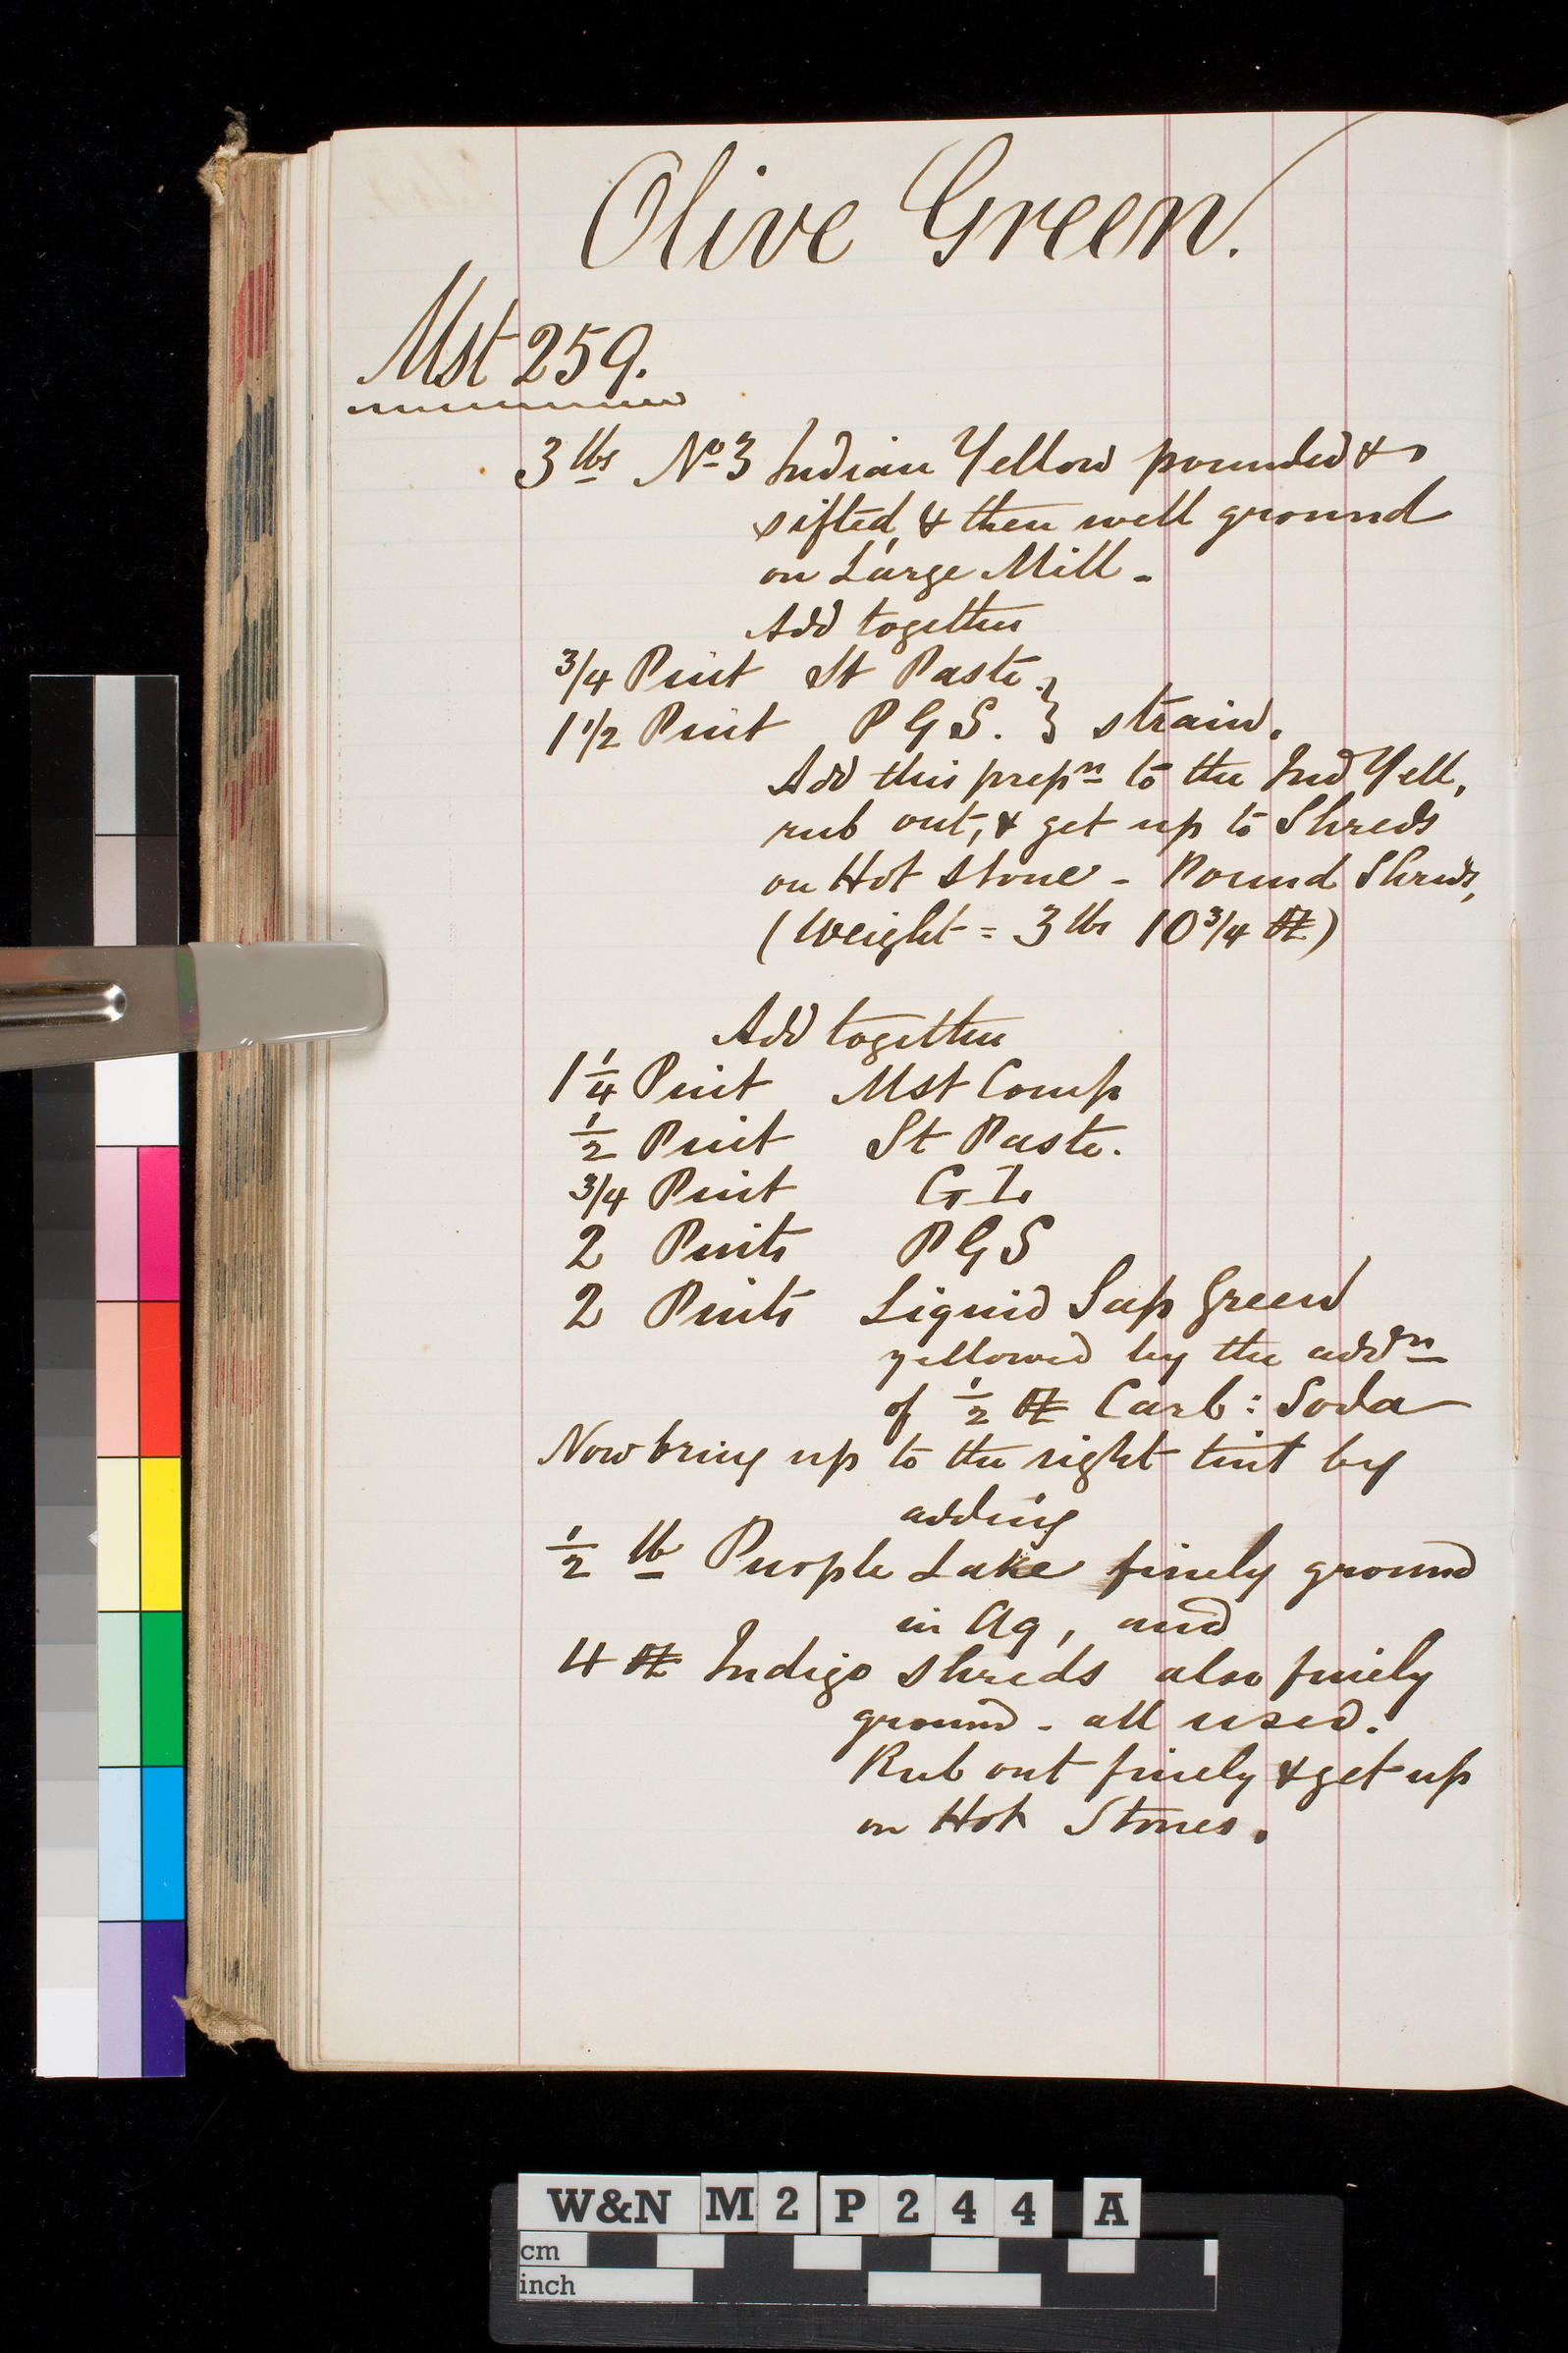 Olive Green.
Mst 259.
3 lbs No 3 Indian Yellow pounded &
sifted, & then well ground
on Large Mill -
Add together
3/4 Pint St Paste.
1 1/2 Pint P G S. } strain.
Add this prepn to the Ind Yell,
rub out, & get up to Shreds
on Hot Stone - Pound Shreds,
(Weight = 3 lbs 10 3/4 oz)
Add together
1 1/4 Pint Mst Comp
1/2 Pint St Paste.
3/4 Pint G I.
2 Pints P G S
2 Pints Liquid Sap Green
yellowed by the addn
of 1/2 oz Carb: Soda
Now bring up to the right tint by
adding
1/2 lb Purple Lake finely ground
in Aq, and
4 oz Indigo Shreds also finely
ground - all used.
Rub out finely & get up
on Hot Stones.
W&N M2P244 A
cm
inch